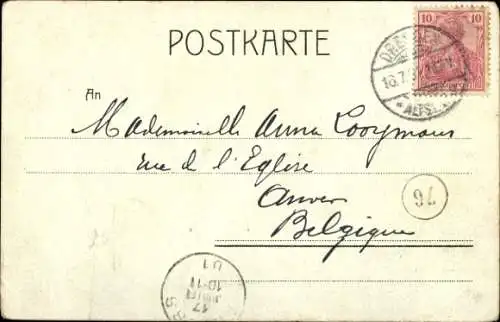 POSTKARTE
10 10
DRESDEN
16.7.
* ALTST.
An
Mademoiselle Anna Looymans
rue de l'Eglise
Anvers
Belgique
76
17
10-11
01